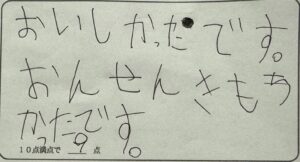 おいしかったです。
おんせんきもち
かったです。
10点満点で 9 点